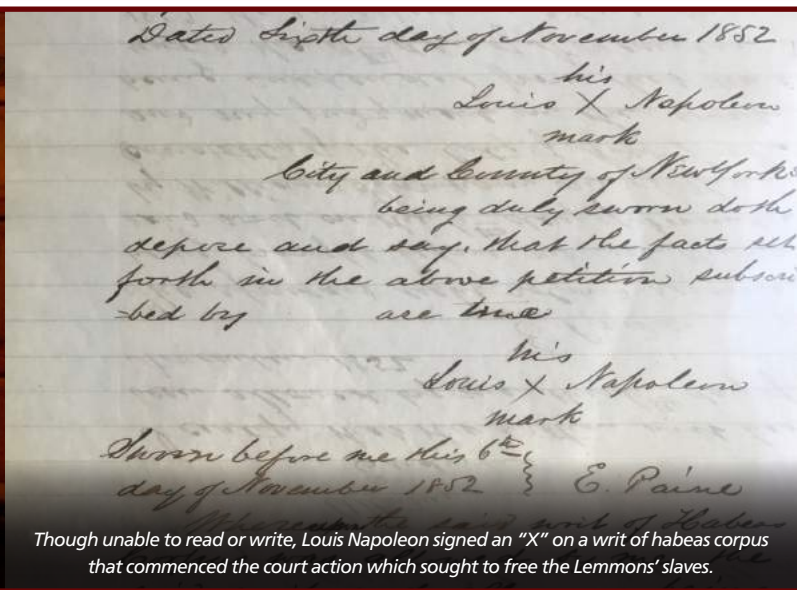 Dated Sixth day of November 1852
his
Louis X Napoleon
mark
City and County of New York
being duly sworn doth
depose and say, that the facts set
forth in the above petition subscri
-bed by are true
his
Louis X Napoleon
mark
Sworn before me this 6th
day of November 1852 } E. Paine
the said writ of Habeas
Though unable to read or write, Louis Napoleon signed an “X” on a writ of habeas corpus
that commenced the court action which sought to free the Lemmons’ slaves.